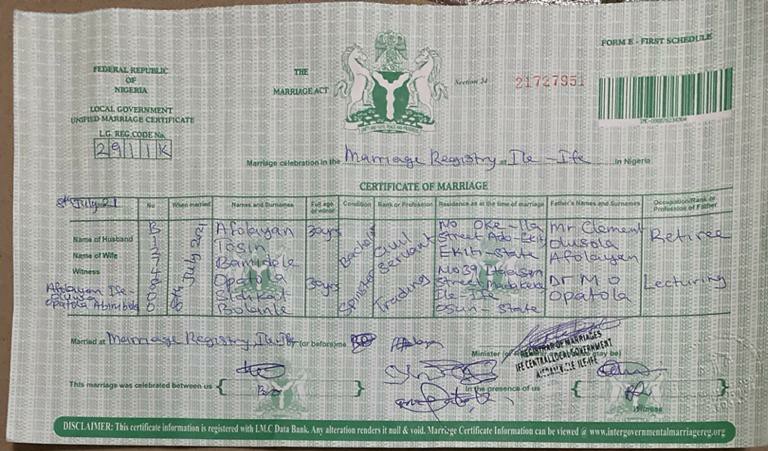 FORM E - FIRST SCHEDULE
FEDERAL REPUBLIC
OF
NIGERIA
THE
MARRIAGE ACT
Section 24
21727951
LOCAL GOVERNMENT
UNIFIED MARRIAGE CERTIFICATE
L.G. REG.CODE No.
2911K
Marriage celebration in the Marriage Registry, Ile-Ife in Nigeria
CERTIFICATE OF MARRIAGE
8th July 21
No
When married
Names and Surnames
Full age or minor
Condition
Rank or Profession
Residence as at the time of marriage
Father's Names and Surnames
Occupation/Rank or Profession of Father
Name of Husband
Name of Wife
Witness
8th July 2021
Afolayan
Tosin
Bamidele
30yrs
Bachelor
Civil Servant
No Oke-Ila
Street Ado-Ekiti
Ekiti-State
Mr Clement
Olusola
Afolayan
Retiree
Opatola
Sidikat
Bolanle
30yrs
Spinster
Trading
No 39
Ile-Ife
Osun-State
Dr M O
Opatola
Lecturing
Opatola Abimbola
Married at Marriage Registry Ile-Ife (or before) me
REGISTRAR OF MARRIAGES
IFE CENTRAL LOCAL GOVERNMENT
ILE-IFE
This marriage was celebrated between us
In the presence of us
Witness
DISCLAIMER: This certificate information is registered with I.M.C Data Bank. Any alteration renders it null & void. Marriage Certificate Information can be viewed @ www.intergovernmentalmarriagereg.org